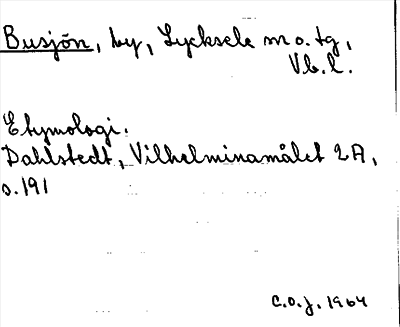 Busjön, by, Lycksele sn o. tg,
Vb. l.
Etymologi.
Dahlstedt, Vilhelminamålet 2A,
s. 191
C.O.J. 1964